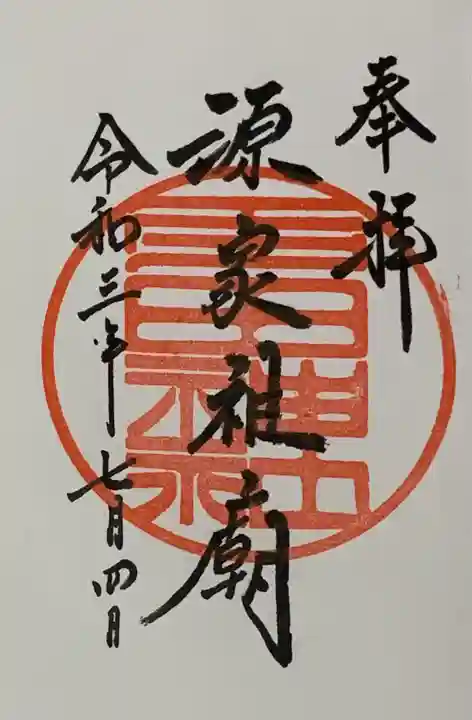 奉拝
源家祖廟
令和三年七月四日